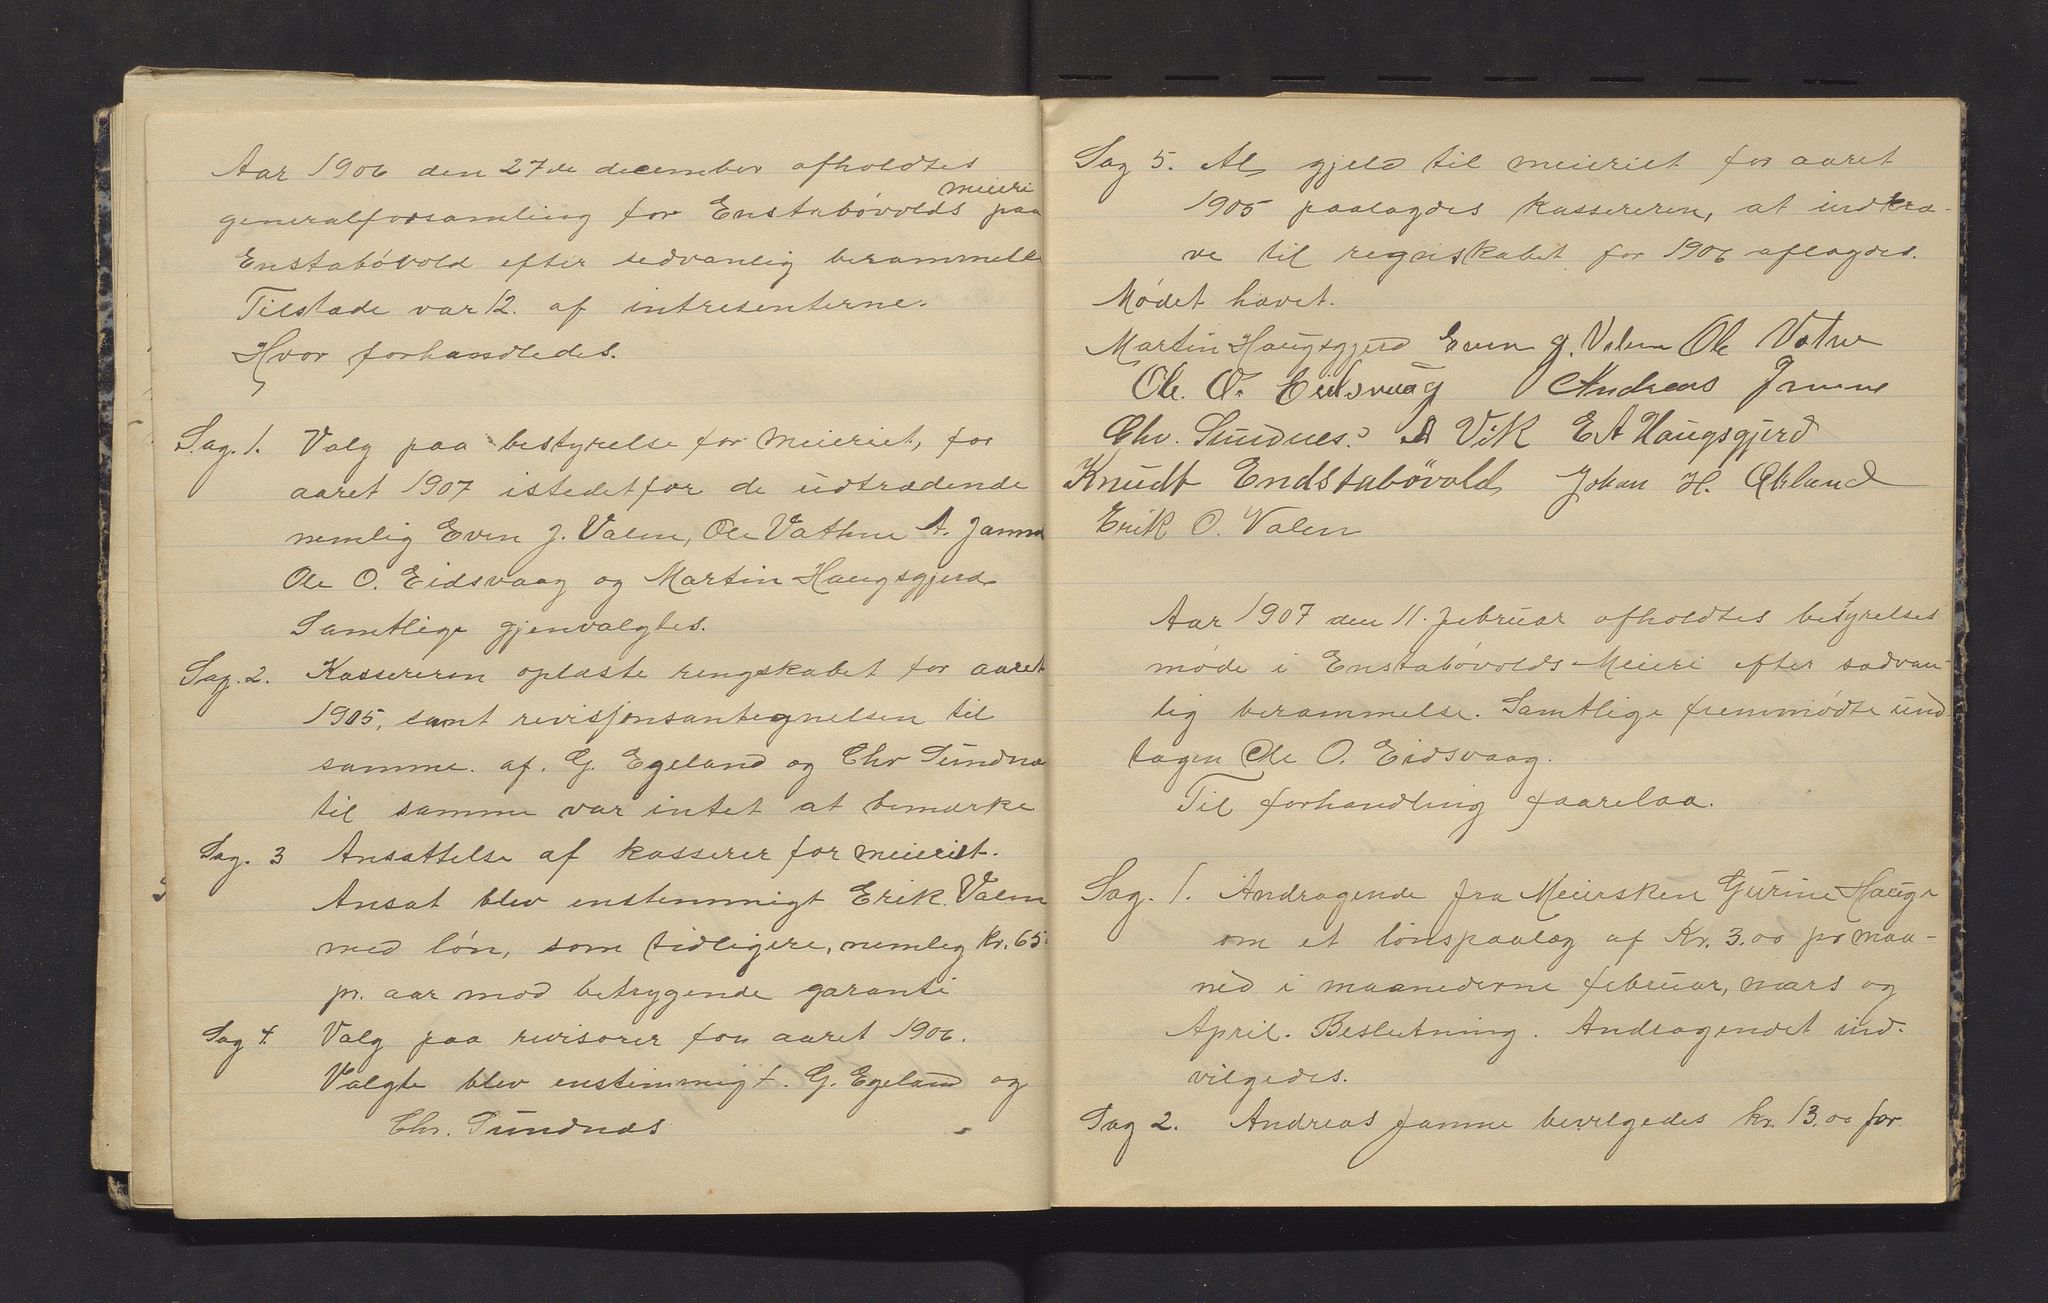 Aar 1906 den 27de december afholdtes
meieri
generalforsamling for Enstabövolds paa
Enstabövold efter sedvanlig berammelse
Tilstede var 12. af intresenterne.
Hvor forhandledes.
Sag. 1. Valg paa bestyrelse for meieriet, for
aaret 1907 istedetfor de udtrædende
nemlig Even J. Valen, Ole Vathne A. Jamne
Ole O. Eidsvaag og Martin Haugsgjerd.
Samtlige gjenvalgtes.
Sag. 2. Kassereren oplæste rengskabet for aaret
1905, samt revisjonsantegnelsen til
samme. af. G. Egeland og Chr Sundnæs
til samme var intet at bemærke
Sag. 3 Ansættelse af kasserer for meieriet.
Ansat blev enstemmigt Erik Valen
med lön, som tidligere, nemlig kr. 65
pr. aar mod betrygende garanti
Sag 4. Valg paa revisorer fon aaret 1906.
Valgte blev enstimmigt. G. Egeland og
Chr. Sundnæs
Sag 5. Al gjeld til meieriet for aaret
1905 paalagdes kassereren, at indkræ-
ve til regnskabet for 1906 aflagdes.
Mödet hævet.
Martin Haugsgjerd Even J. Valen Ole Vatne
Ole. O. Eidsvaag Andreas Jamne
Chr. Sundnes. A Vik E A Haugsgjerd
Knudt Endstabövold Johan H. Økland
Erik O. Valen
Aar 1907 den 11. februar afholdtes bestyrelses
møde i Enstabövolds Meieri efter sædvan-
lig berammelse. Samtlige fremmödte und-
tagen Ole O. Eidsvaag.
Til forhandling faarelaa.
Sag. 1. Andragende fra Meiersken Gurine Hauge
om et lönspaalæg af Kr. 3.00 pr maa-
ned i maanederne februar, mars og
April. Beslutning. Andragendet ind-
vilgedes.
Sag 2. Andreas Jamne bevilgedes kr. 13.00 for